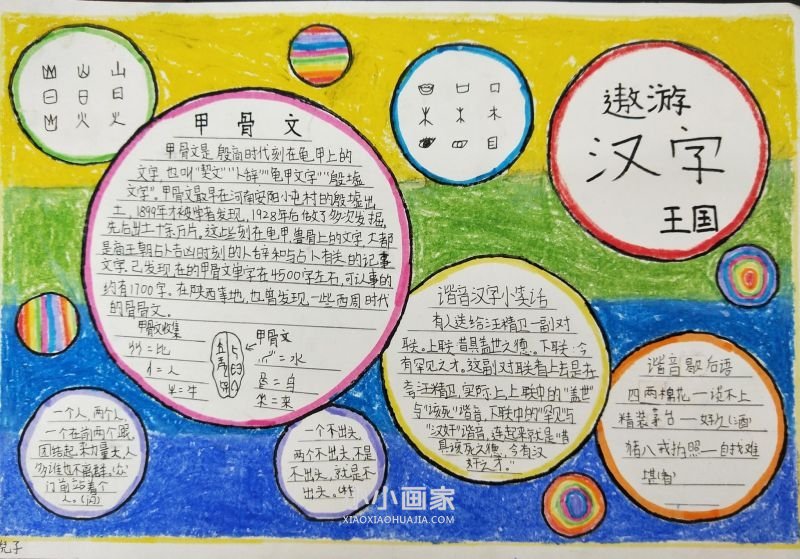 山
日
火
口
木
目
遨游
汉字
王国
甲骨文
甲骨文是殷商时代刻在龟、甲上的
文字,也叫"契文""卜辞""龟甲文字""殷墟
文字"。甲骨文最早在河南安阳小屯村的殷墟出
土,1899年才被学者发现,1928年后做了多次发掘,
先后出土十余万片。这些刻在龟甲、兽骨上的文字,大都
是商王朝占卜吉凶时刻的卜辞和与占卜有关的记事
文字,已发现在的甲骨文单字在4500字左右,可认事的
约有1700字。在陕西等地,也曾发现一些西周时代
的骨骨文。
甲骨文收集
=比
=人
=牛
甲骨文
=水
=鸟
=来
谐音汉字小笑话
有人送给汪精卫一副对
联。上联:昔具盖世之德。下联:今
有罕见之才。这副对联看上去是在
夸汪精卫,实际上,上联中的"盖世"
与"该死"谐音,下联中的"罕见"与
"汉奸"谐音,连起来就是"昔
具该死之德,今有汉
奸之才。"
谐音歇后语
四两棉花—谈不上
精装茅台—好久(酒
猪八戒拍照—自找难
堪(看)
一个人,两个人,
一个在前两个跟,
团结起来力量大,人
多谁也不离群。(众)
门前站着个
人。(闪)
一个不出头,
两个不出头,不是
不出头,就是不
出头。(林
小画家
XIAOXIAOHUAJIA.COM